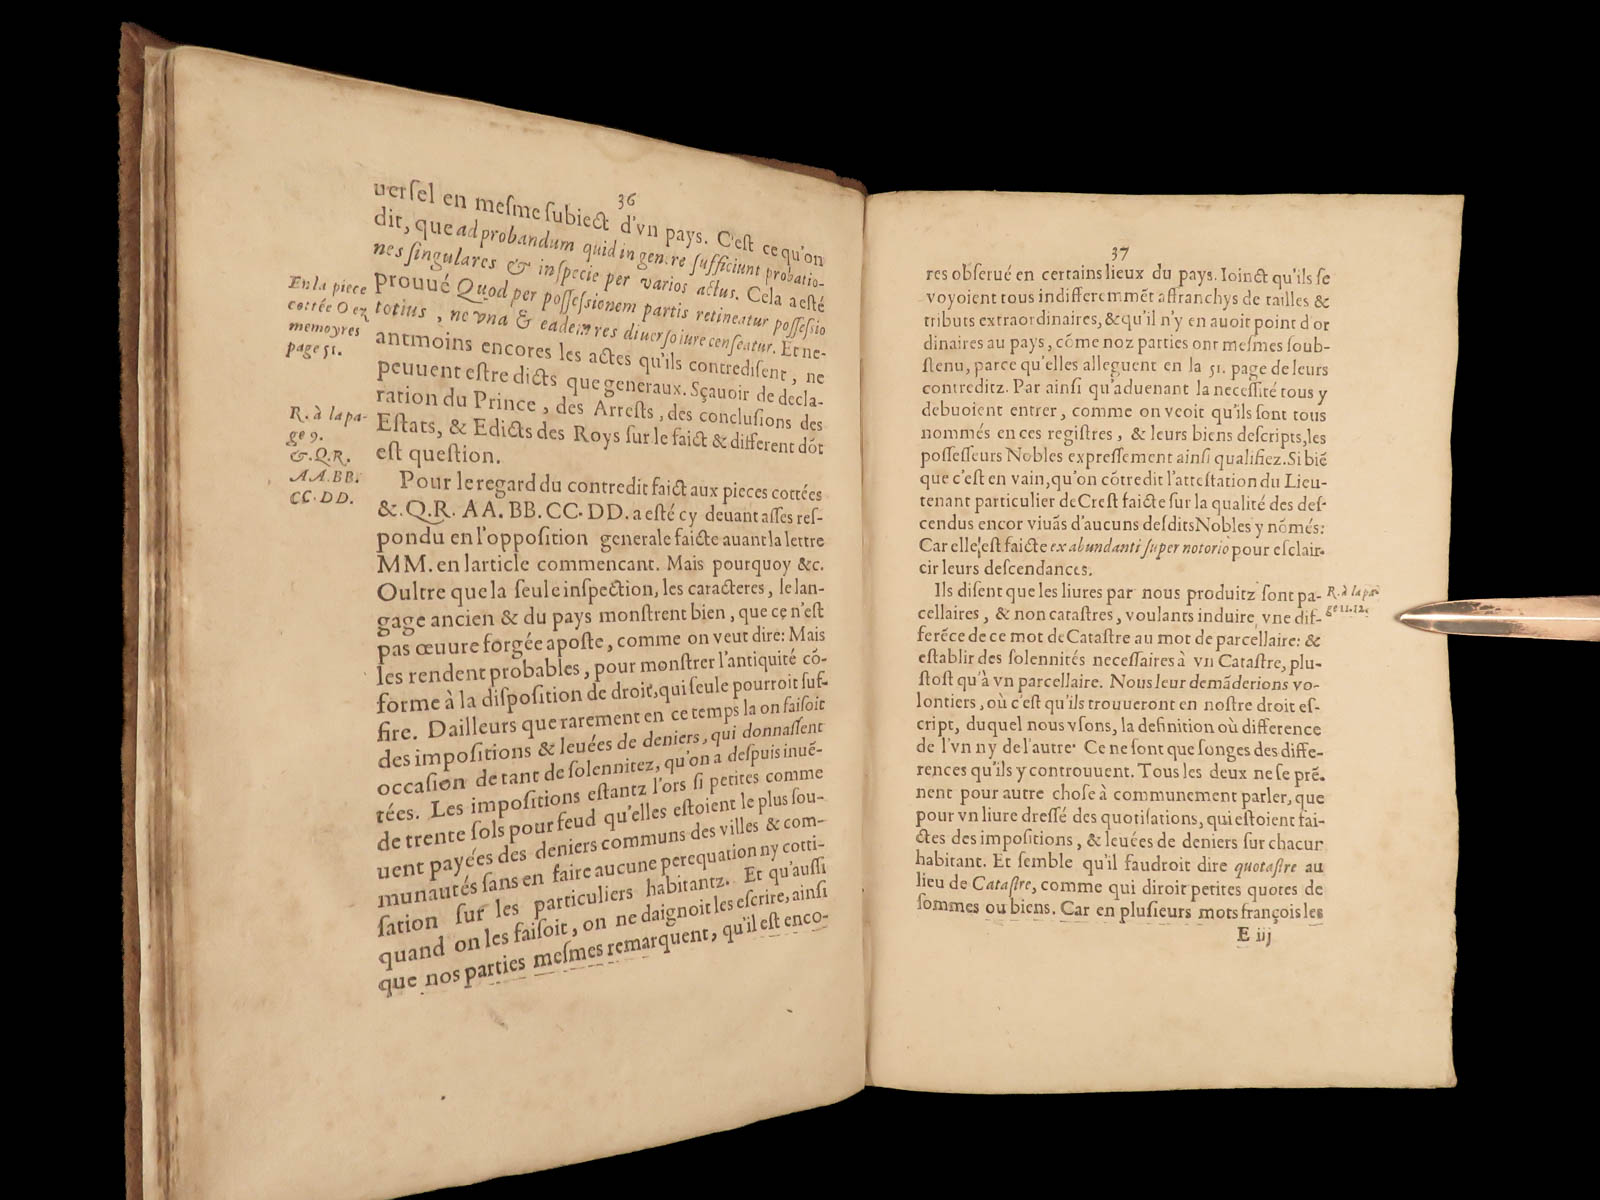 36
uerſel en meſme ſubiect d'vn pays. C'eſt ce qu'on
dit, que ad probandum quid in genere ſufficiunt probatio-
nes ſingulares & inſpecie per varios actus. Cela a eſté
prouué Quod per poſſeſsionem partis retineatur poſſeſsio
totius, ne vna & eadem res diuerſo iure cenſeatur. Et ne-
antmoins encores les actes qu'ils contrediſent, ne
peuuent eſtre dicts que generaux. Sçauoir de decla-
ration du Prince, des Arreſts, des concluſions des
Eſtats, & Edicts des Roys ſur le faict & different dõt
eſt queſtion.
En la piece
cottée O ez
memoyres
page 51.
R. à la pa-
ge 9.
&.Q.R.
AA.BB.
CC.DD.
Pour le regard du contredit faict aux pieces cottées
&. Q.R. AA. BB. CC. DD. a eſté cy deuant aſſes reſ-
pondu en l'oppoſition generale faicte auant la lettre
MM. en larticle commencant. Mais pourquoy &c.
Oultre que la ſeule inſpection, les caracteres, le lan-
gage ancien & du pays monſtrent bien, que ce n'eſt
pas œuure forgée apoſte, comme on veut dire: Mais
les rendent probables, pour monſtrer l'antiquité cõ-
forme à la diſpoſition de droit, qui ſeule pourroit ſuf-
fire. Dailleurs que rarement en ce temps la on faiſoit
des impoſitions & leuées de deniers, qui donnaſſent
occaſion de tant de ſolennitez, qu'on a deſpuis inuẽ-
tées. Les impoſitions eſtantz l'ors ſi petites comme
de trente ſols pour feud qu'elles eſtoient le plus ſou-
uent payées des deniers communs des villes & com-
munautés ſans en faire aucune perequation ny cotti-
ſation ſur les particuliers habitantz. Et qu'auſſi
quand on les faiſoit, on ne daignoit les eſcrire, ainſi
que nos parties meſmes remarquent, qu'il eſt enco-
37
res obſerué en certains lieux du pays. Ioinct qu'ils ſe
voyoient tous indifferemmẽt affranchys de tailles &
tributs extraordinaires, & qu'il n'y en auoit point d'or
dinaires au pays, cõme noz parties ont meſmes ſoub-
ſtenu, parce qu'elles alleguent en la 51. page de leurs
contreditz. Par ainſi qu'aduenant la neceſſité tous y
debuoient entrer, comme on veoit qu'ils ſont tous
nommés en ces regiſtres, & leurs biens deſcripts, les
poſſeſſeurs Nobles expreſſement ainſi qualifiez. Si biẽ
que c'eſt en vain, qu'on cõtredit l'atteſtation du Lieu-
tenant particulier de Creſt faicte ſur la qualité des deſ-
cendus encor viuãs d'aucuns deſdits Nobles y nõmés:
Car elle eſt faicte ex abundanti ſuper notorio pour eſclair-
cir leurs deſcendances.
Ils diſent que les liures par nous produitz ſont pa-
cellaires, & non cataſtres, voulants induire vne dif-
ferẽce de ce mot de Cataſtre au mot de parcellaire: &
eſtablir des ſolennités neceſſaires à vn Cataſtre, plu-
ſtoſt qu'à vn parcellaire. Nous leur demãderions vo-
lontiers, où c'eſt qu'ils trouueront en noſtre droit eſ-
cript, duquel nous vſons, la definition où difference
de l'vn ny de l'autre. Ce ne ſont que ſonges des diffe-
rences qu'ils y controuuent. Tous les deux ne ſe prẽ-
nent pour autre choſe à communement parler, que
pour vn liure dreſſé des quotiſations, qui eſtoient fai-
ctes des impoſitions, & leuées de deniers ſur chacur
habitant. Et ſemble qu'il faudroit dire quotaſtre au
lieu de Cataſtre, comme qui diroit petites quotes de
ſommes ou biens. Car en pluſieurs mots françois les
R. à la pa-
ge 11.12.
E iij